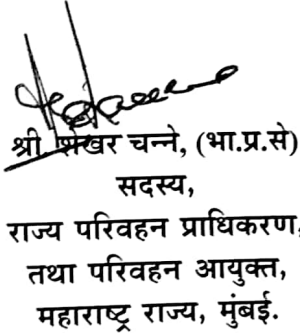 श्री शेखर चन्ने, (भा.प्र.से)
सदस्य,
राज्य परिवहन प्राधिकरण,
तथा परिवहन आयुक्त,
महाराष्ट्र राज्य, मुंबई.